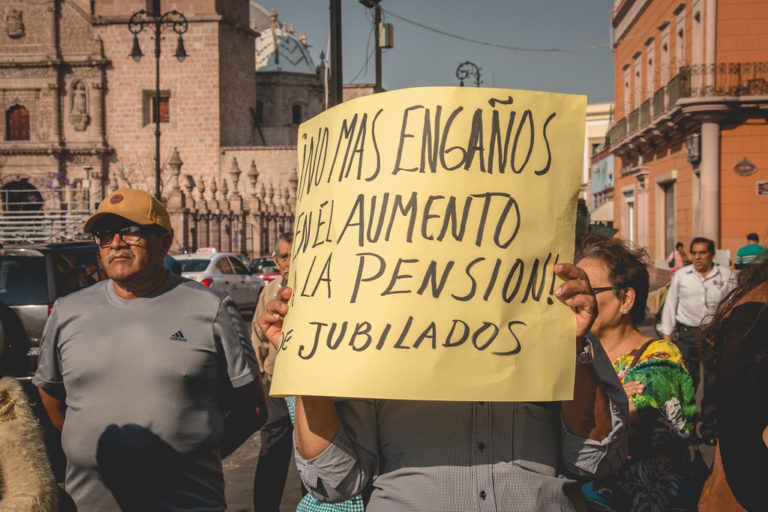 ¡NO MAS ENGAÑOS
EN EL AUMENTO
LA PENSION!
DE JUBILADOS
adidas